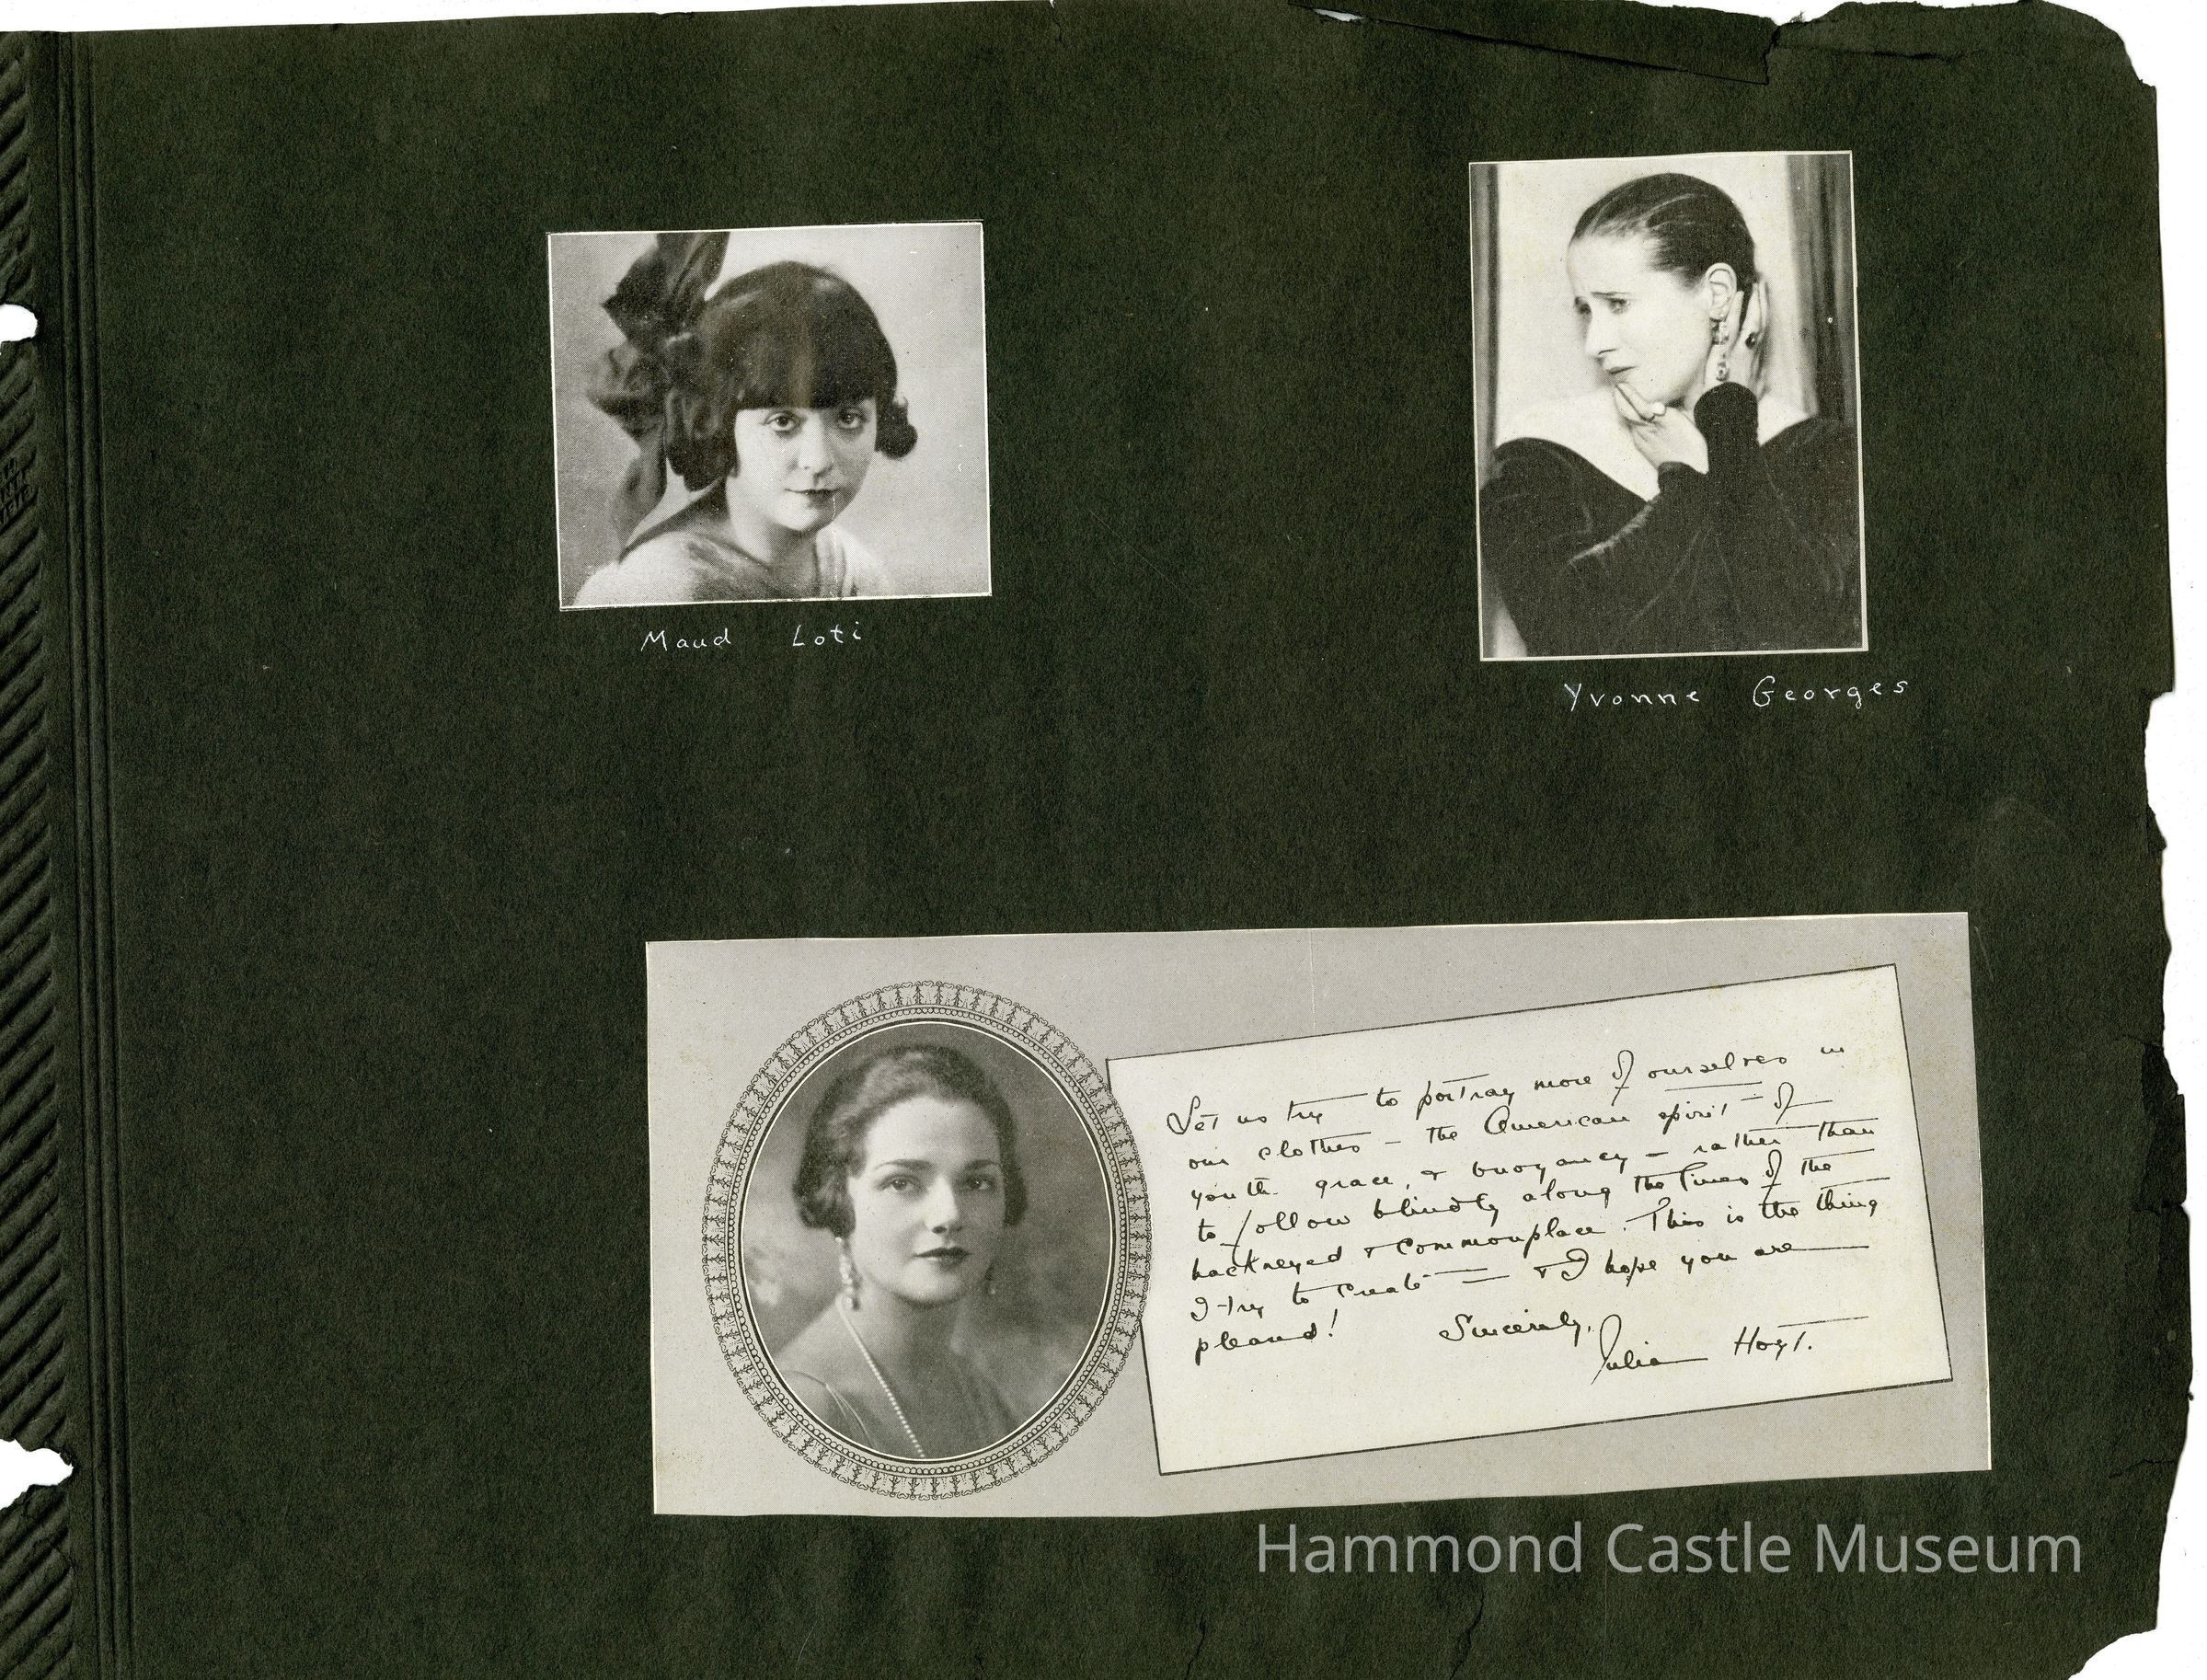 Maud Loti
Yvonne Georges
Let us try to portray more of ourselves in
our clothes - the American spirit of
youth grace, & buoyancy - rather than
to follow blindly along the lines of the
hackneyed & commonplace. This is the thing
I try to create - & I hope you are
pleased!
Sincerely,
Julia Hoyt.
Hammond Castle Museum